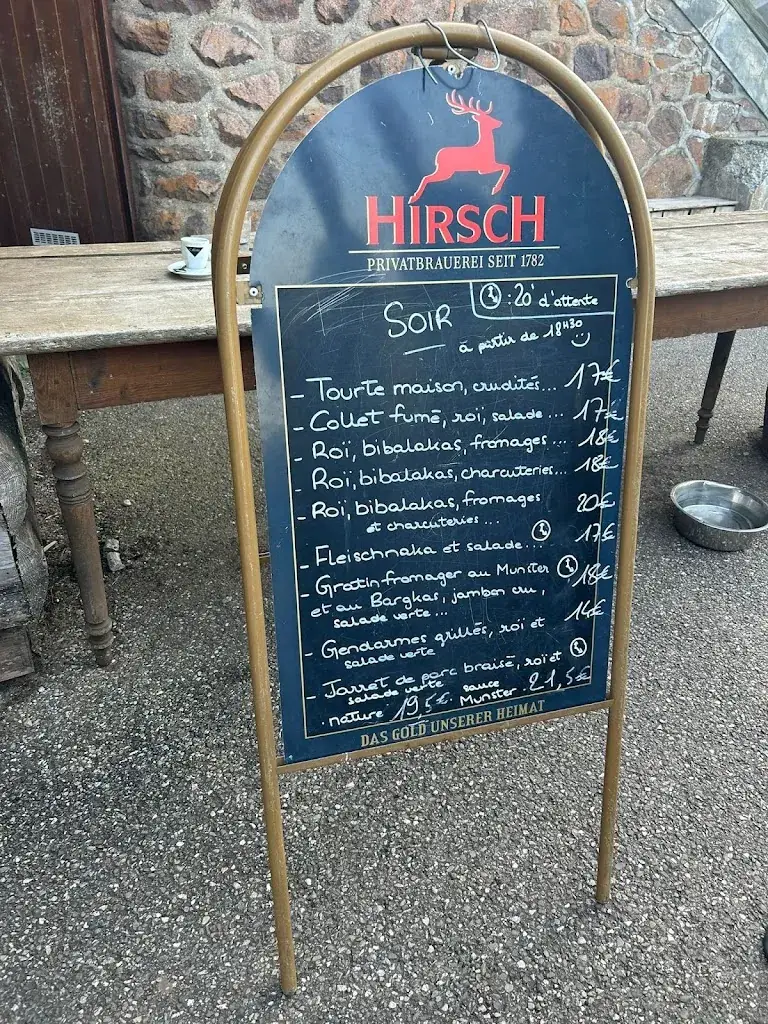 HIRSCH
PRIVATBRAUEREI SEIT 1782
SOIR
: 20' d'attente
à partir de 18H30
- Tourte maison, crudités... 17€
- Collet fumé, roï, salade... 17€
- Roï, bibalakas, fromages... 18€
- Roï, bibalakas, charcuteries... 18€
- Roï, bibalakas, fromages 20€
et charcuteries...
- Fleischnaka et salade... 17€
- Gratin fromager au Munster 18€
et au Bargkas, jambon cru,
salade verte...
- Gendarmes grillés, roï et 14€
salade verte
- Jarret de porc braisé, roï et
salade verte sauce
. nature 19,5€. Munster. 21,5€
DAS GOLD UNSERER HEIMAT